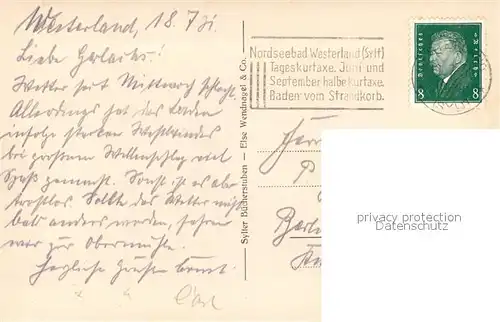 Westerland, 18.7.31.
Liebe
Wetter seit Mittwoch schlecht.
Allerdings hat das Baden
infolge starken Westwindes
bei großem Wellenschlag viel
Spaß gemacht. Sonst ist es aber
trostlos. Sollte das Wetter nicht
bald anders werden, fahren
wir zur Obermühle.
Herzliche Grüße Ernst
Sylter Bücherstuben — Else Wendnagel & Co.
Nordseebad Westerland (Sylt)
Tageskurtaxe. Juni und
September halbe Kurtaxe.
Baden vom Strandkorb.
Deutsches Reich
8 8
Herrn
P
Berlin
privacy protection
Datenschutz